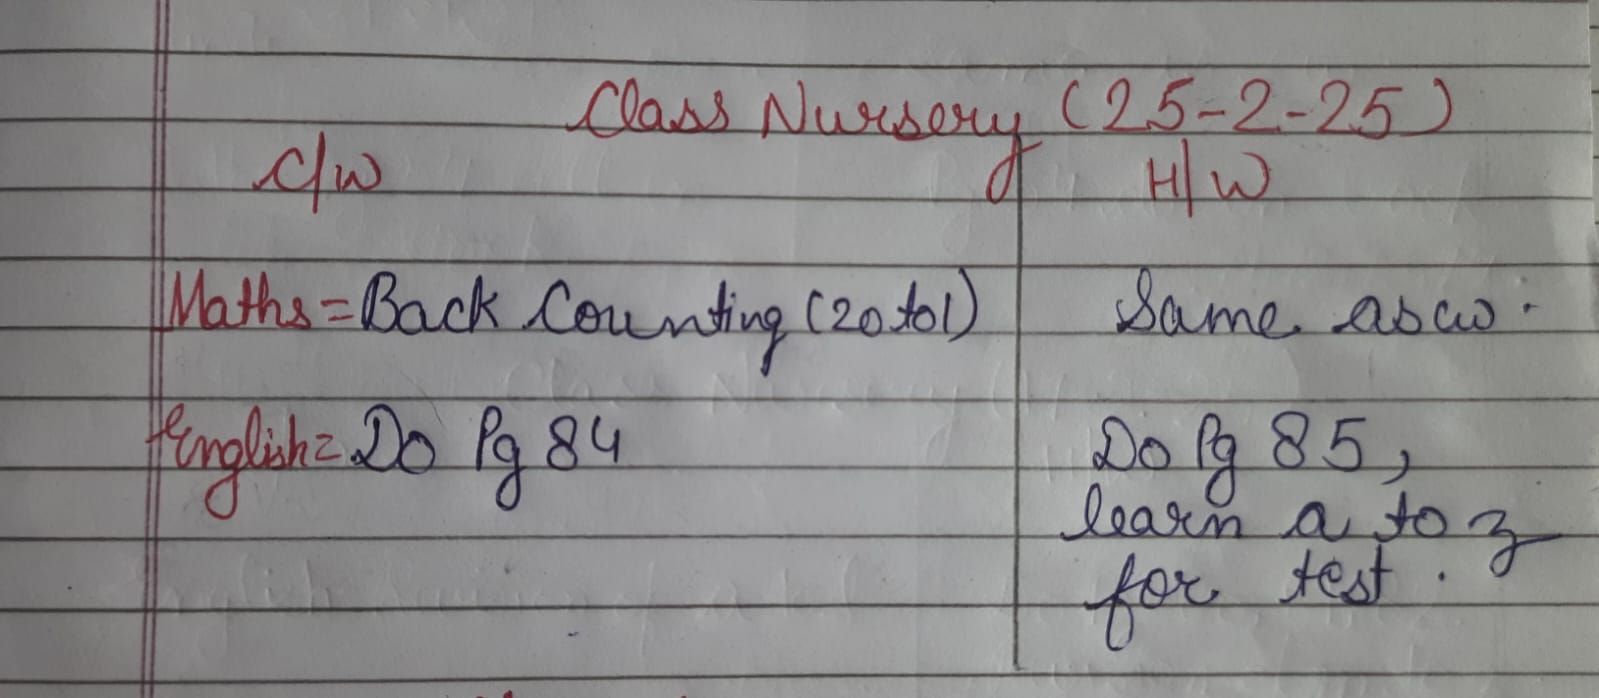 Class Nursery (25-2-25)
C/W H/W
Maths = Back Counting (20 to 1) Same as cw.
English = Do Pg 84 Do Pg 85,
learn a to z
for test.